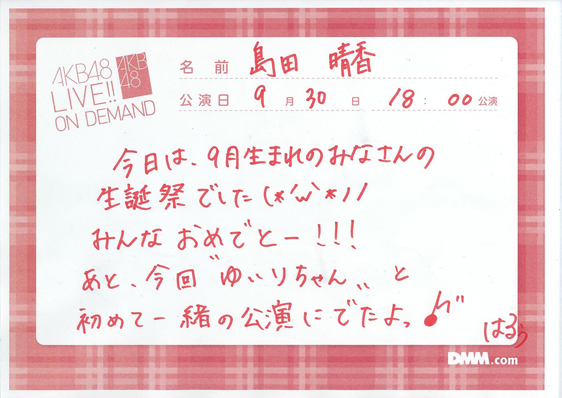 AKB48
LIVE!!
ON DEMAND
AKB
48
名前 島田 晴香
公演日 9月30日 18:00公演
今日は、9月生まれのみなさんの
生誕祭でした(*´ω`*)ノノ
みんなおめでとー!!!
あと、今回〝ゆいりちゃん〟と
初めて一緒の公演にでたよっ♪"
はるぅ
DMM.com